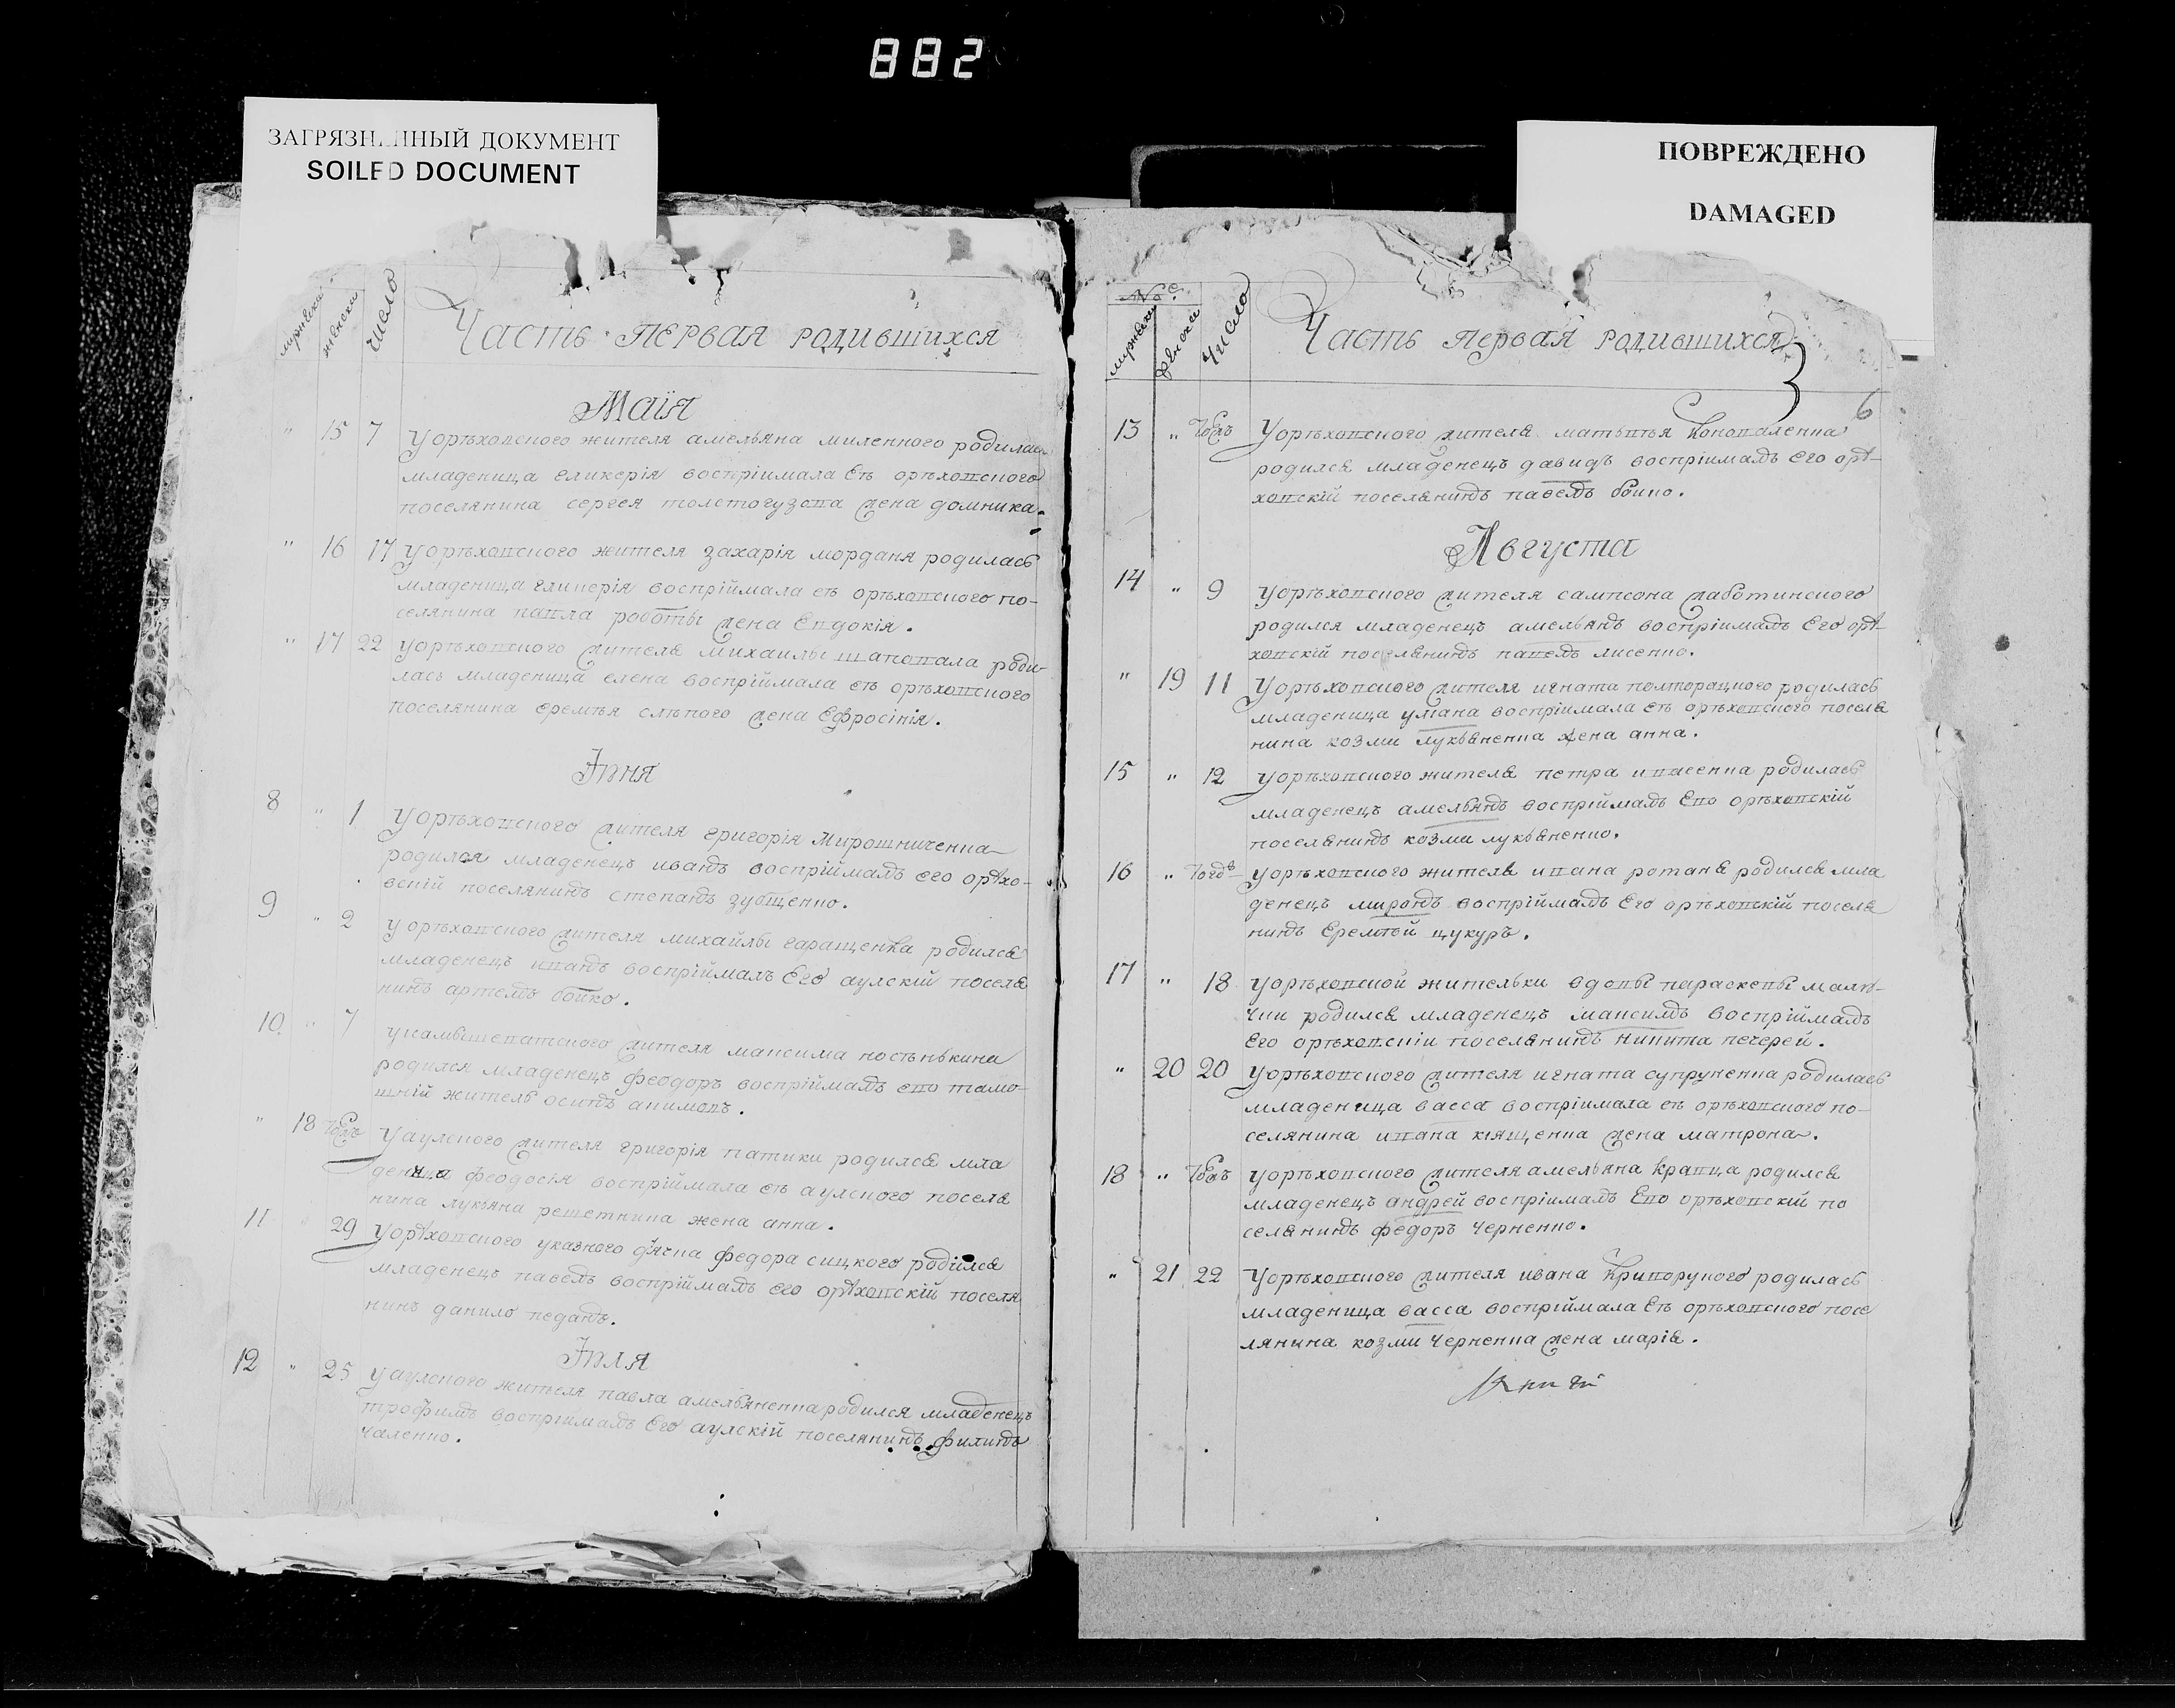 882
ЗАГРЯЗН ННЫЙ ДОКУМЕНТ
SOILED DOCUMENT
мужеска
женска
число
Часть первая родившихся
Маїя
" 15 7 У орѣховского жителя амельяна миленкого родилась
младеница гликерія воспріимала еѣ орѣховского
поселянина сергея толстогузова жена домника.
" 16 17 У орѣховского жителя захарія морданя родилась
младеница гликерія воспріймала еѣ орѣховского по-
селянина павла роботы жена Евдокія.
" 17 22 У орѣховского жителя михаилы шаповала роди-
лась младеница елена воспріймала еѣ орѣховского
поселянина еремѣя слѣпого жена Ефросінія.
Іюня
8 " 1 У орѣховского жителя григорія Мирошниченка
родился младенецъ иванъ воспріймалъ его орѣхо-
вскій поселянинъ степанъ зубщенко.
9 " 2 У орѣховского жителя михайлы гаращенка родился
младенецъ иванъ воспріймалъ Его аулскій поселя
нинъ артемъ бойко.
10 " 7 У камышеватского жителя максима
родился младенецъ феодоръ воспріймалъ его тамо-
шній житель осипъ акимовъ.
" 18 У аулского жителя григорія патики родился мла
деница феодосія воспріймала еѣ аулского поселя
нина лукьяна решетника жена анна.
11 " 29 У орѣховского указного дьячка федора сицкого родился
младенецъ павелъ воспріймалъ его орѣховскій поселя
нинъ данило педанъ.
Іюля
12 " 25 У аулского жителя павла амельяненка родился младенецъ
трофимъ воспріималъ Его аулскій поселянинъ филипъ
чаленко.
ПОВРЕЖДЕНО
DAMAGED
№е
мужеска
женска
Число
Часть первая родившихся
3
6
13 " У орѣховского жителя матвѣя Коноваленка
родился младенецъ давидъ воспріималъ его орѣ-
ховскій поселянинъ павелъ бойко.
Августа
14 " 9 У орѣховского жителя сампсона жаботинского
родился младенецъ амельянъ воспріималъ Его орѣ-
ховскій поселянинъ павелъ лисенко.
" 19 11 У орѣховского жителя игната полторацкого родилась
младеница улiана воспріимала еѣ орѣховского поселя
нина козми лукьяненка жена анна.
15 " 12 У орѣховского жителя петра ивасенка родилась
младенецъ амельянъ воспріймалъ Его орѣховскій
поселянинъ козма лукьяненко.
16 " У орѣховского жителя ивана ротаня родился мла
денецъ миронъ воспріймалъ Его орѣховскій поселя
нинъ Еремѣй цукуръ.
17 " 18 У орѣховской жительки вдовы параскевы
родился младенецъ максимъ воспріймалъ
Его орѣховскіи поселянинъ никита печерей.
" 20 20 У орѣховского жителя игната супруненка родилась
младеница васса воспріимала еѣ орѣховского по-
селянина ивана кващенка жена матрона.
18 " У орѣховского жителя амельяна кравца родился
младенецъ андрей воспріималъ Его орѣховскій по
селянинъ федоръ черненко.
" 21 22 У орѣховского жителя ивана Криворукого родилась
младеница васса воспріймала Еѣ орѣховского посе
лянина козми черненка жена марія.